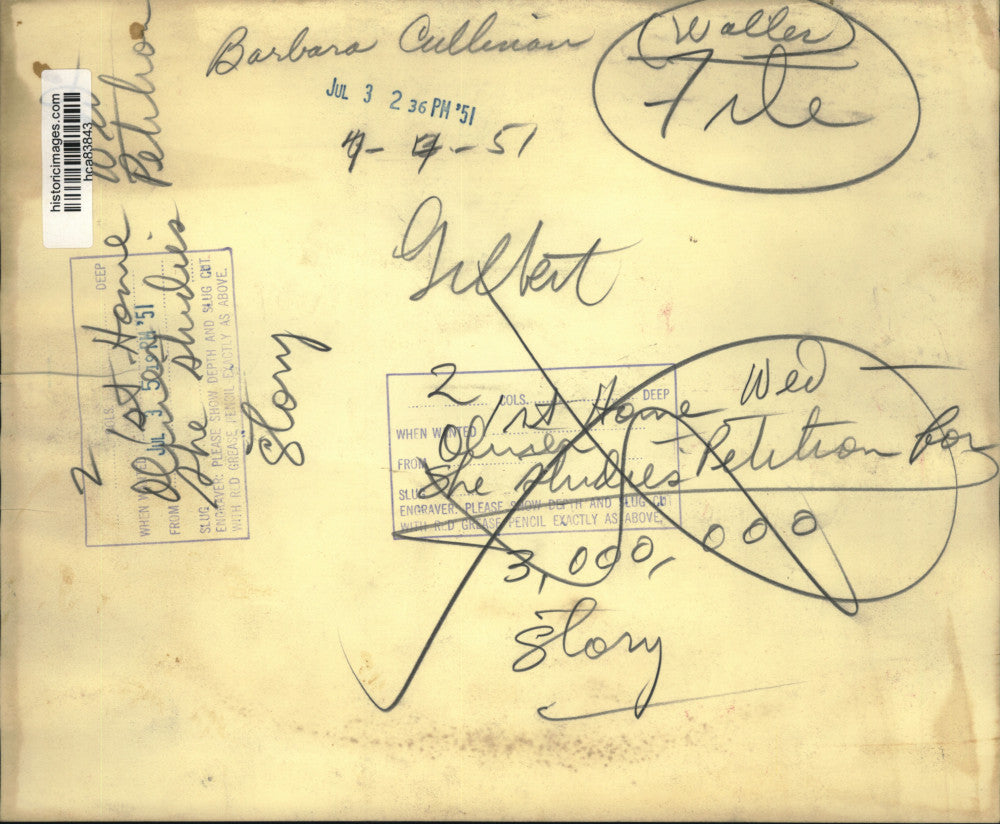 Barbara Cullinan
Waller
File
JUL 3 2 36 PM '51
7- 7-51
Gilbert
historicimages.com
hca83843
2 1st Home Wed
COLS. DEEP
WHEN WANTED
FROM
She studies Petition for
SLUG
ENGRAVER: PLEASE SHOW DEPTH AND SLUG CUT
WITH RED GREASE PENCIL EXACTLY AS ABOVE.
3,000,000
Story
2 1st Home Wed
COLS. DEEP
WHEN WANTED
JUL 3 '51
FROM
She studies Petition
SLUG
ENGRAVER: PLEASE SHOW DEPTH AND SLUG CUT
WITH RED GREASE PENCIL EXACTLY AS ABOVE.
Story